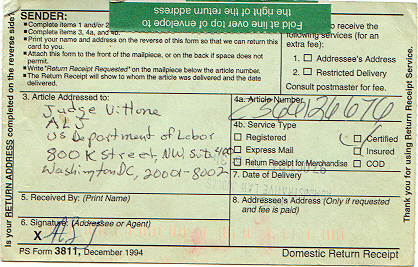 Fold at line over top of envelope to
the right of the return address
SENDER:
■ Complete items 1 and/or 2
■ Complete items 3, 4a, and 4b.
■ Print your name and address on the reverse of this form so that we can return this
card to you.
■ Attach this form to the front of the mailpiece, or on the back if space does not
permit.
■ Write "Return Receipt Requested" on the mailpiece below the article number.
■ The Return Receipt will show to whom the article was delivered and the date
delivered.
to receive the
following services (for an
extra fee):
1. Addressee's Address
2. Restricted Delivery
Consult postmaster for fee.
3. Article Addressed to:
Judge Vittone
ALJ
US Department of Labor
800 K Street, NW, Suite 400
Washington DC, 20001-8002
4a. Article Number
4b. Service Type
Registered
Certified
Express Mail
Insured
Return Receipt for Merchandise
COD
7. Date of Delivery
5. Received By: (Print Name)
8. Addressee's Address (Only if requested
and fee is paid)
6. Signature: (Addressee or Agent)
X
PS Form 3811, December 1994
Domestic Return Receipt
Is your RETURN ADDRESS completed on the reverse side?
Thank you for using Return Receipt Service.